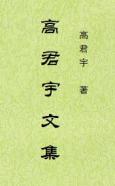 高君宇文集
高君宇 著